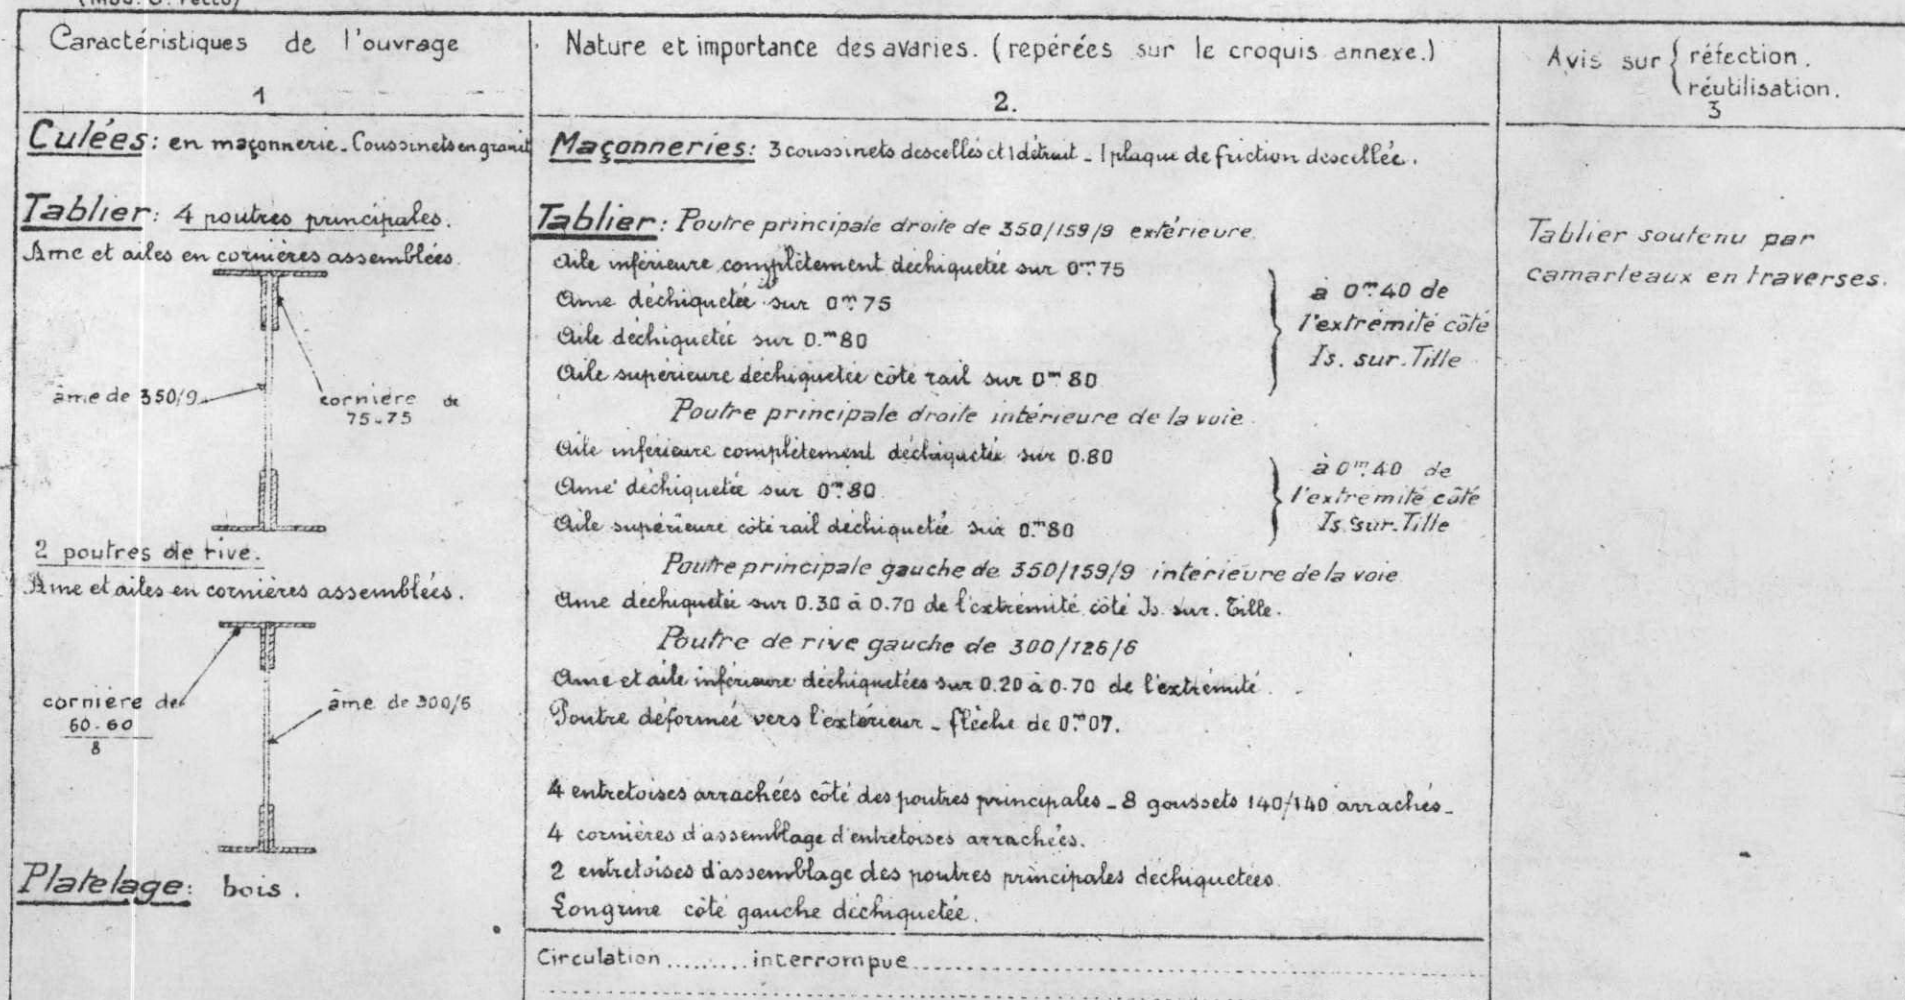 Caractéristiques de l'ouvrage
1
Culées: en maçonnerie. Coussinets en granit
Tablier: 4 poutres principales.
Ame et ailes en cornières assemblées.
âme de 350/9
cornière de
75-75
2 poutres de rive.
Ame et ailes en cornières assemblées.
cornière de
60-60
8
âme de 300/6
Platelage: bois.
Nature et importance des avaries. (repérées sur le croquis annexe.)
2.
Maçonneries: 3 coussinets descellés et 1 détruit - 1 plaque de friction descellée.
Tablier: Poutre principale droite de 350/159/9 extérieure
Aile inférieure complètement déchiquetée sur 0m75
Ame déchiquetée sur 0m75
Aile déchiquetée sur 0.m80
Aile supérieure déchiquetée côté rail sur 0m80
à 0m40 de
l'extrémité côté
Is. sur. Tille
Poutre principale droite intérieure de la voie
Aile inférieure complètement déchiquetée sur 0.80
Ame déchiquetée sur 0m80
Aile supérieure côté rail déchiquetée sur 0.m80
à 0m40 de
l'extrémité côté
Is. sur. Tille
Poutre principale gauche de 350/159/9 intérieure de la voie
Ame déchiquetée sur 0.30 à 0.70 de l'extrémité côté Is. sur. Tille.
Poutre de rive gauche de 300/126/6
Ame et aile inférieure déchiquetées sur 0.20 à 0.70 de l'extrémité.
Poutre déformée vers l'extérieur - flèche de 0.m07.
4 entretoises arrachées côté des poutres principales - 8 goussets 140/140 arrachés -
4 cornières d'assemblage d'entretoises arrachées.
2 entretoises d'assemblage des poutres principales déchiquetées
Longrine côté gauche déchiquetée.
Circulation ......... interrompue
Avis sur { réfection.
réutilisation.
3
Tablier soutenu par
camarteaux en traverses.